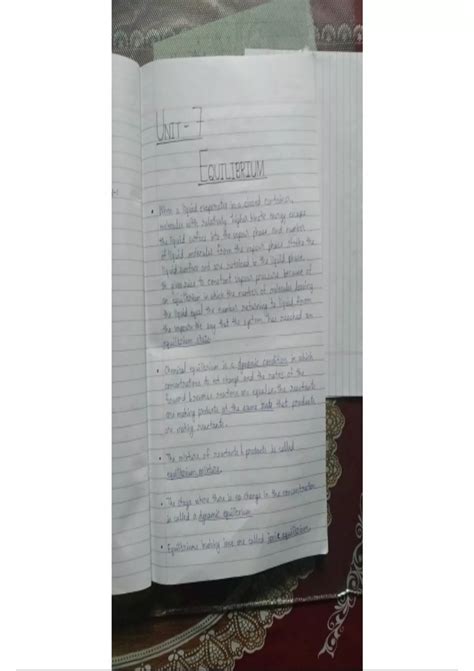 UNIT - 7
EQUILIBRIUM
• When a liquid evaporates in a closed container,
molecules with relatively higher kinetic energy escape
the liquid surface into the vapour phase and number
of liquid molecules from the vapour phase strike the
liquid surface and are retained in the liquid phase.
It gives rise to constant vapour pressure because of
an equilibrium in which the number of molecules leaving
the liquid equal the number returning to liquid from
the vapour. We say that the system has reached an
equilibrium state.
• Chemical equilibrium is a dynamic condition in which
concentrations do not change and the rates of the
forward & reverse reactions are equal i.e. the reactants
are making products at the same rate that products
are making reactants.
• The mixture of reactants & products is called
equilibrium mixture.
• The stage when there is no change in the concentration
is called a dynamic equilibrium
• Equilibrium involving ions are called ionic equilibrium.